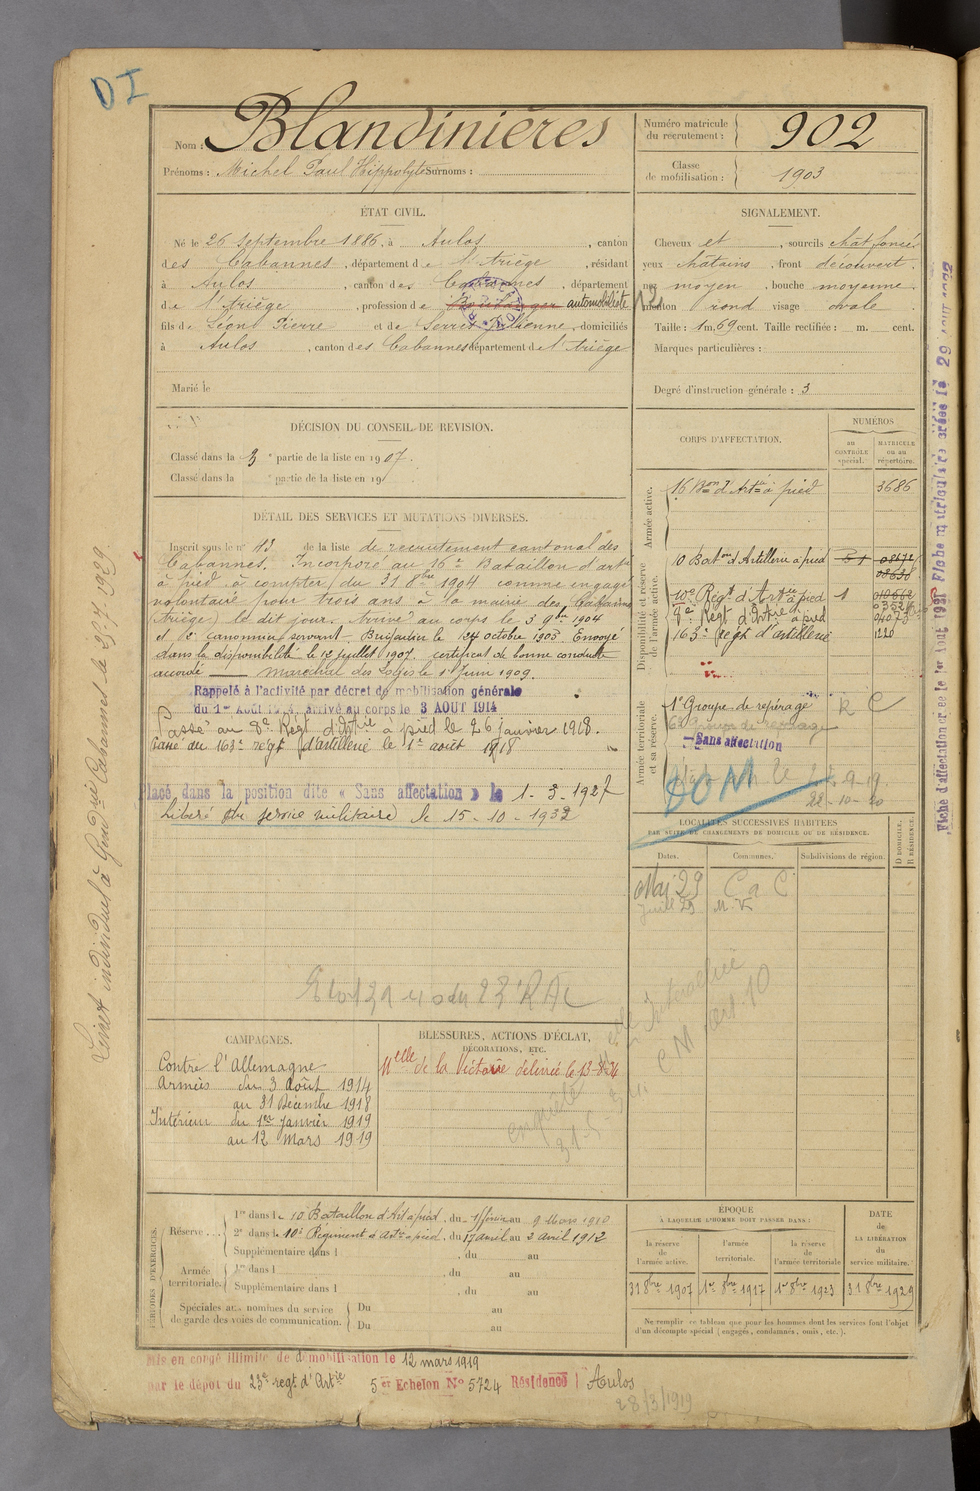 DI
Nom : Blandinières
Prénoms : Michel Paul Hippolyte Surnoms :
Numéro matricule du recrutement : 902
Classe de mobilisation : 1903
ÉTAT CIVIL.
Né le 26 Septembre 1886, à Aulos, canton
des Cabannes, département de l'Ariège, résidant
à Aulos, canton des Cabannes, département
de l'Ariège, profession de Boulanger automobiliste
fils de Léon Pierre et de Serres Julienne, domiciliés
à Aulos, canton des Cabannes département de l'Ariège
Marié le
SIGNALEMENT.
Cheveux et , sourcils chât foncés
yeux châtains, front découvert
nez moyen, bouche moyenne
menton rond visage ovale
Taille : 1m,69 cent. Taille rectifiée : m. cent.
Marques particulières :
Degré d'instruction générale : 3
DÉCISION DU CONSEIL DE REVISION.
Classé dans la 3e partie de la liste en 1907.
Classé dans la e partie de la liste en 19
DÉTAIL DES SERVICES ET MUTATIONS DIVERSES.
Inscrit sous le n° 13 de la liste de recrutement cantonal des
Cabannes. Incorporé au 16e Bataillon d'artie
à pied à compter du 31 8bre 1904 comme engagé
volontaire pour trois ans à la mairie des Cabannes
(Ariège) le dit jour. Arrivé au corps le 3 9bre 1904
et 2e canonnier servant. Brigadier le 24 octobre 1905. Envoyé
dans la disponibilité le 12 juillet 1907. certificat de bonne conduite
accordé — Maréchal des Logis le 1er Juin 1909.
Rappelé à l'activité par décret de mobilisation générale
du 1er Août 1914, arrivé au corps le 3 AOUT 1914
Passé au 8e Régt d'Artie à pied le 26 janvier 1918.
Passé au 163e régt d'artillerie le 1er août 1918
Placé dans la position dite « Sans affectation » le 1-3-1927
Libéré du service militaire le 15-10-1932
CORPS D'AFFECTATION.
NUMÉROS
au CONTRÔLE spécial.
MATRICULE ou au répertoire.
Armée active.
16 Bon d'Artie à pied 3686
Disponibilité et réserve de l'armée active.
10 Baton d'Artillerie à pied
10e Régt d'Artie à pied 1
8e Régt d'Artie à pied
163e Régt d'artillerie 1220
Armée territoriale et sa réserve.
1er Groupe de repérage
6e Groupe de repérage
Sans affectation
DOM
22-10-20
LOCALITÉS SUCCESSIVES HABITÉES
PAR SUITE DE CHANGEMENTS DE DOMICILE OU DE RÉSIDENCE.
Dates. Communes. Subdivisions de région. D DOMICILE. R RÉSIDENCE.
Mai 29 C a C
Juill 29
CAMPAGNES.
Contre l'Allemagne
Armées du 3 Août 1914
au 31 Décembre 1918
Intérieur du 1er janvier 1919
au 12 Mars 1919
BLESSURES, ACTIONS D'ÉCLAT,
DÉCORATIONS, ETC.
Melle de la Victoire délivrée le 13-8-24
enquête
PÉRIODES D'EXERCICES.
Réserve . . . 1re dans le 10 Bataillon d'Art à pied, du 1 février au 9 Mars 1910
2e dans le 10e Régiment d'Artie à pied, du 17 avril au 2 avril 1912
Supplémentaire dans l , du au
Armée territoriale. 1re dans l , du au
Supplémentaire dans l , du au
Spéciales aux hommes du service de garde des voies de communication. Du au
Du au
ÉPOQUE
A LAQUELLE L'HOMME DOIT PASSER DANS :
la réserve de l'armée active. l'armée territoriale. la réserve de l'armée territoriale
DATE de LA LIBÉRATION du service militaire.
31 8bre 1907 1er 8bre 1917 1er 8bre 1923 31 8bre 1929
Ne remplir ce tableau que pour les hommes dont les services font l'objet
d'un décompte spécial (engagés, condamnés, omis, etc.).
Mis en congé illimité de démobilisation le 12 mars 1919
par le dépôt du 23e régt d'Artie 5er Echelon N° 5724 Résidence Aulos
28/3/1919
Livret individuel à Gendie Cabannes le 23-4-1929
Fiche d'affectation créée le 1er Août 1927 Fiche matriculaire créée le 29